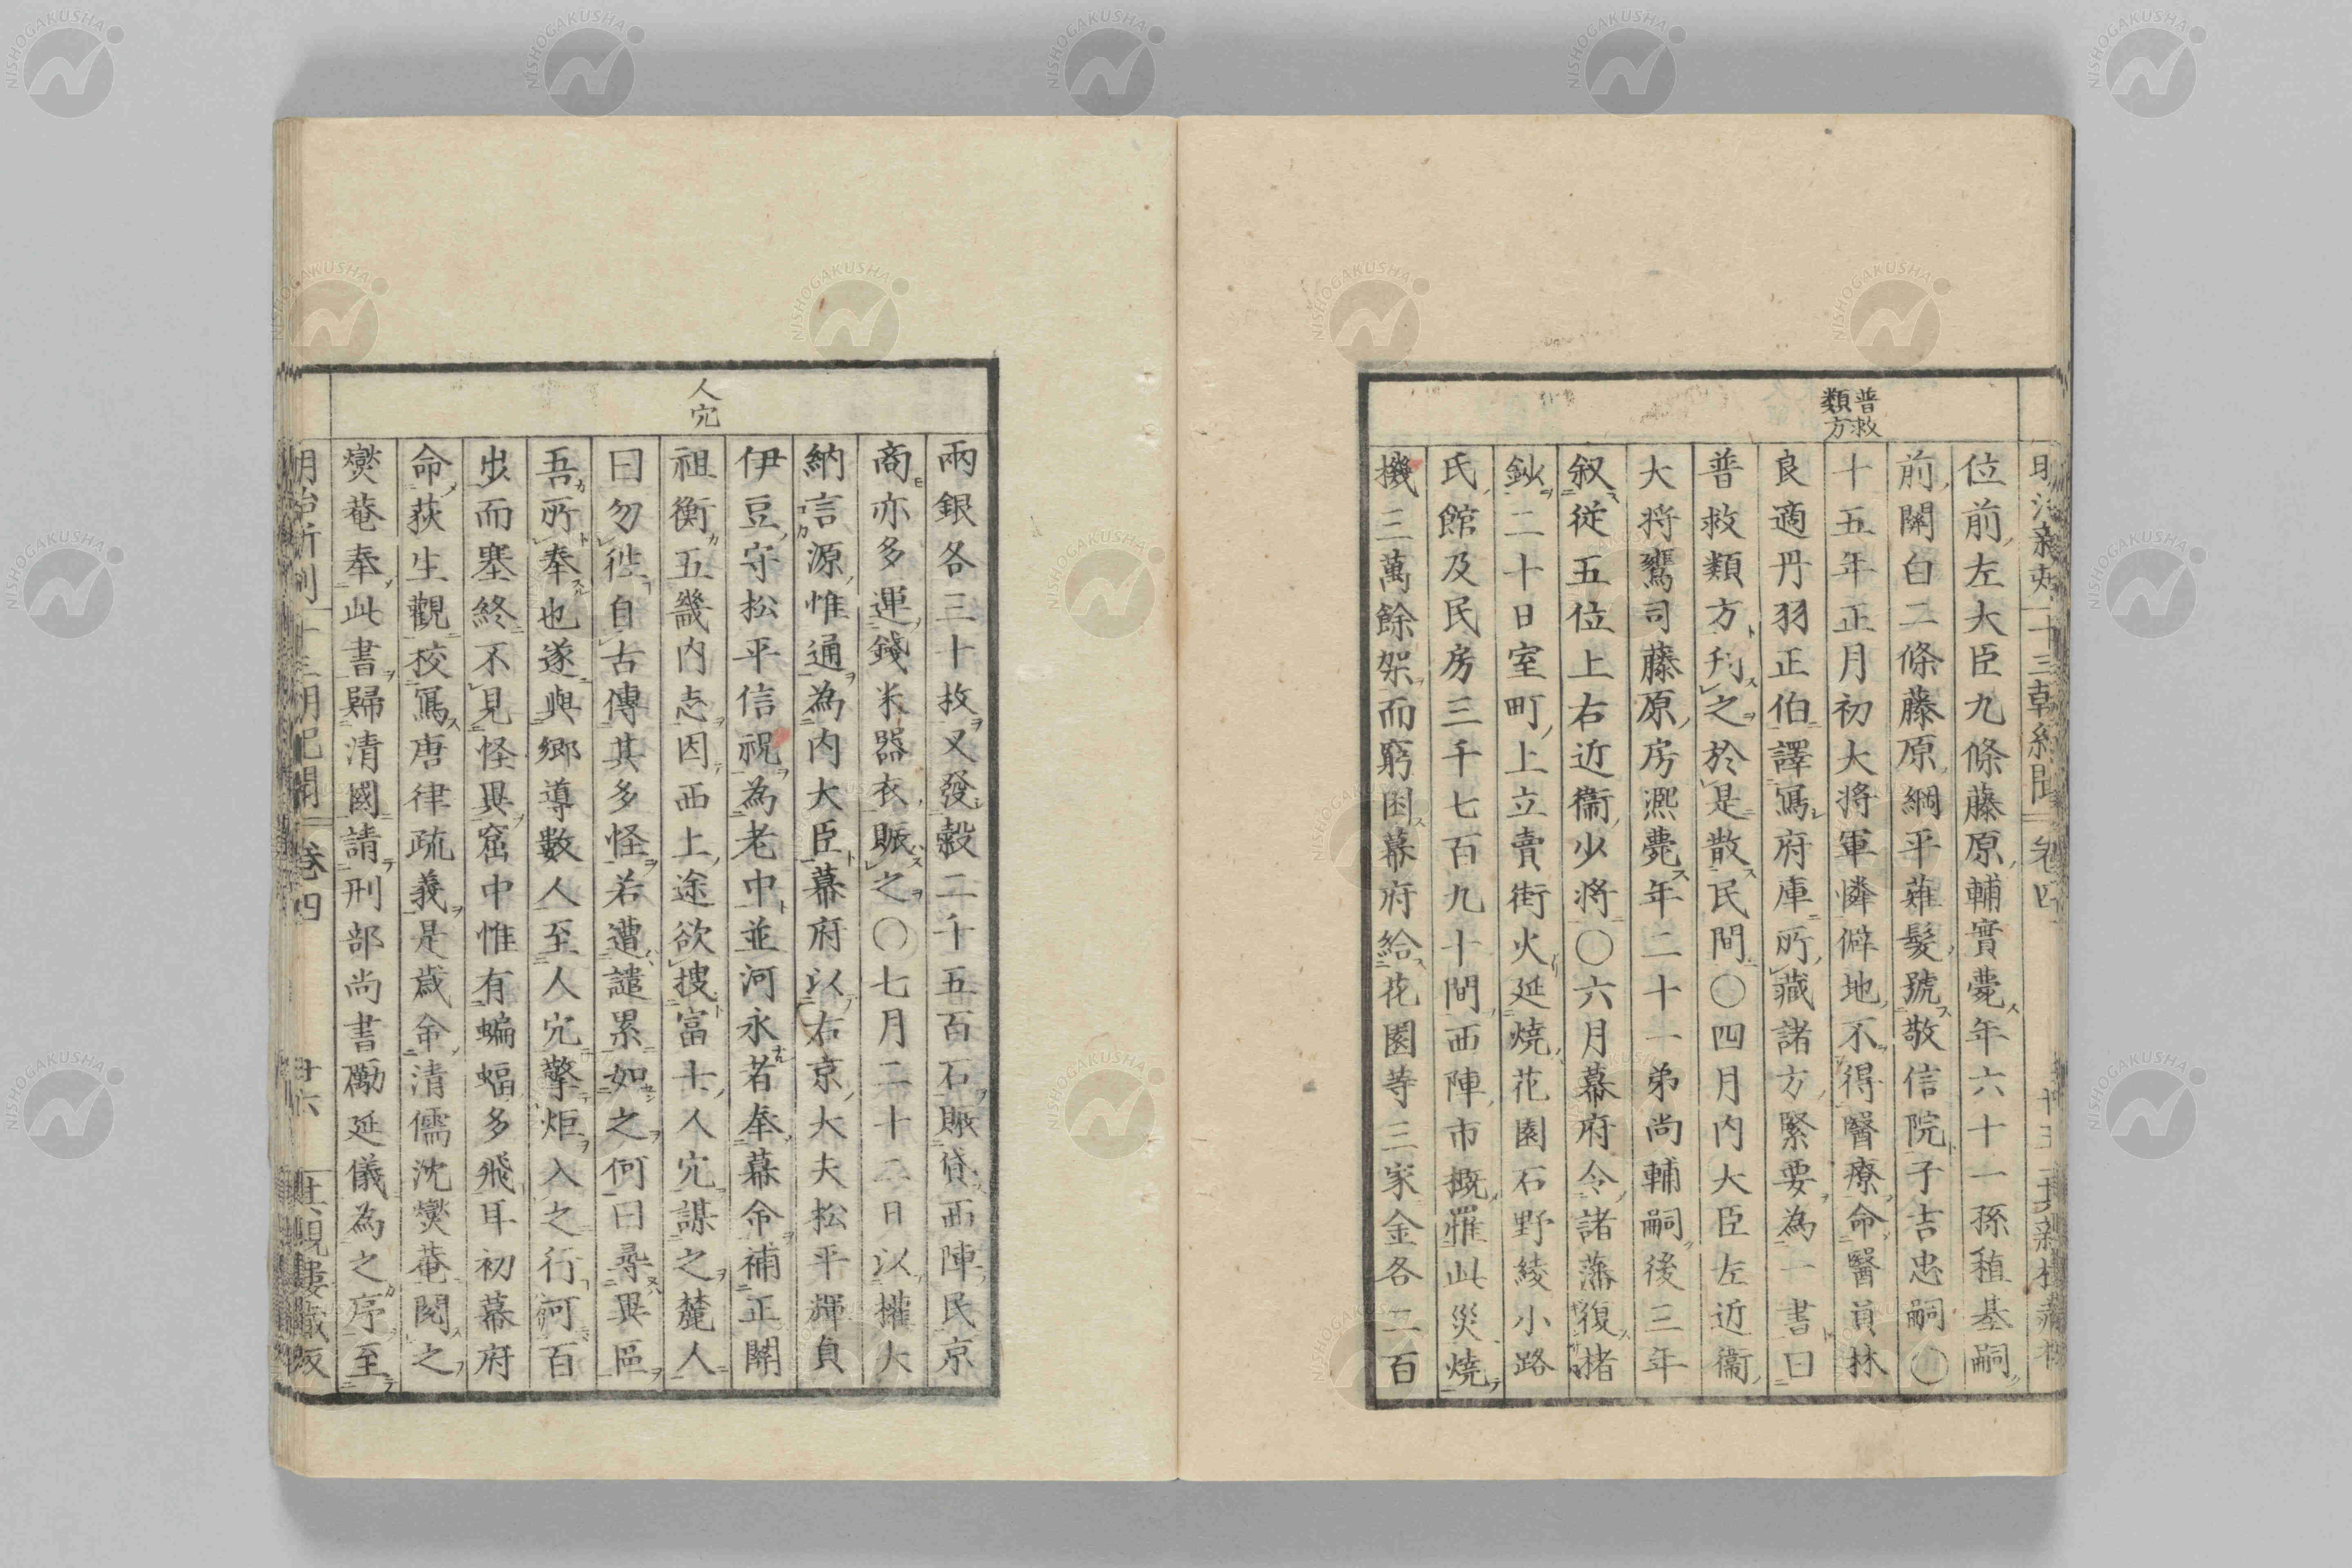 普救
類方
位前左大臣九條藤原輔實薨年六十一孫稙基嗣
前關白二條藤原綱平薙髮號敬信院子吉忠嗣〇
十五年正月初大將軍憐僻地不得醫療命醫員林
良適丹羽正伯譯寫府庫所藏諸方緊要為一書曰
普救類方刊之於是散民間〇四月内大臣左近衞
大將鷹司藤原房凞薨年二十一弟尚輔嗣後三年
叙從五位上右近衞少將〇六月幕府令諸藩復楮
鈔二十日室町上立賣街火延燒花園石野綾小路
氏館及民房三千七百九十間西陣市概罹此災燒
機三萬餘架而窮困幕府給花園等三家金各二百
人穴
兩銀各三十枚又發穀二千五百石賑貸西陣民京
商亦多運錢米器衣賑之〇七月二十二日以權大
納言源惟通為内大臣幕府以右京大夫松平輝貞
伊豆守松平信祝為老中並河永若奉幕命補正關
祖衡五畿内志因西上途欲搜富士人穴謀之麓人
曰勿徃自古傳其多怪若遭譴累如之何曰尋異區
吾所奉也遂與郷導數人至人穴擎炬入之行可百
步而塞終不見怪異窟中惟有蝙蝠多飛耳初幕府
命荻生觀校寫唐律疏義是歳命清儒沈燮菴閲之
燮菴奉此書歸清國請刑部尚書勵延儀為之序至
卷四